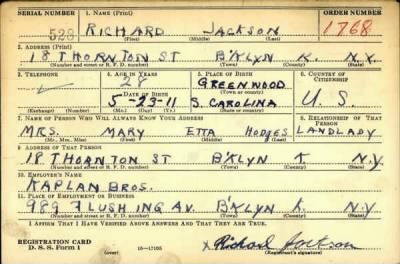 SERIAL NUMBER 1. NAME (Print) ORDER NUMBER
528 RICHARD JACKSON 1768
(First) (Middle) (Last)
2. ADDRESS (Print)
18 THORNTON ST B'KLYN K. N.Y.
(Number and street or R. F. D. number) (Town) (County) (State)
3. TELEPHONE 4. AGE IN YEARS 5. PLACE OF BIRTH 6. COUNTRY OF CITIZENSHIP
28 GREENWOOD
DATE OF BIRTH (Town or county)
5-23-11 S. CAROLINA U.S.
(Exchange) (Number) (Mo.) (Day) (Yr.) (State or country)
7. NAME OF PERSON WHO WILL ALWAYS KNOW YOUR ADDRESS 8. RELATIONSHIP OF THAT PERSON
MRS. MARY ETTA HODGES LANDLADY
(Mr., Mrs., Miss) (First) (Middle) (Last)
9. ADDRESS OF THAT PERSON
18 THORNTON ST B'KLYN K. N.Y
(Number and street or R. F. D. number) (Town) (County) (State)
10. EMPLOYER'S NAME
KAPLAN BROS.
11. PLACE OF EMPLOYMENT OR BUSINESS
989 FLUSHING AV. B'KLYN K N.Y
(Number and street or R. F. D. number) (Town) (County) (State)
I AFFIRM THAT I HAVE VERIFIED ABOVE ANSWERS AND THAT THEY ARE TRUE.
REGISTRATION CARD
D. S. S. Form 1 16-17105 x Richard Jackson
(Registrant's signature)